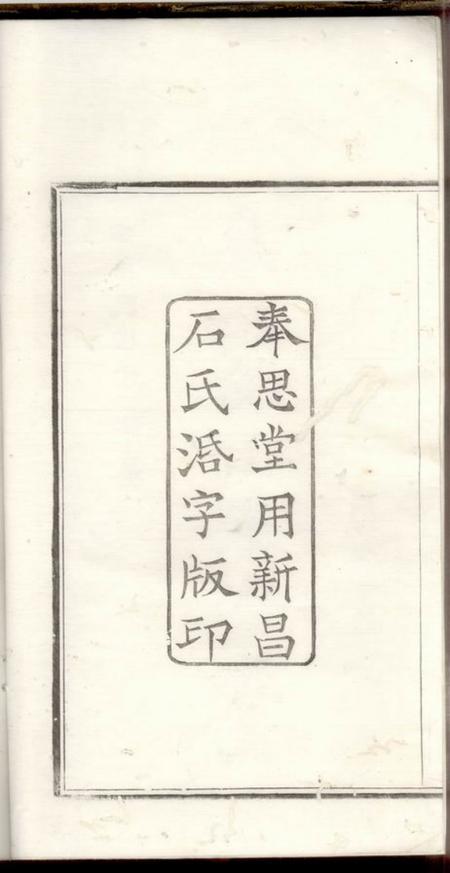 奉思堂用新昌
石氏湉字版印